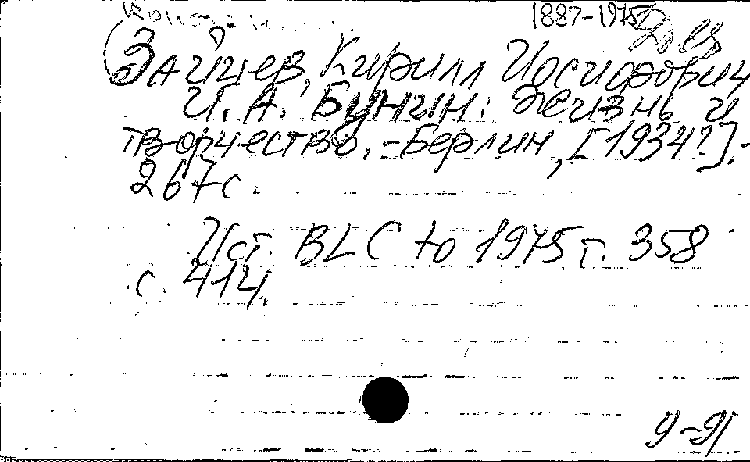 1887-1975
Зайцев, Кирилл Иосифович
И. А. Бунин: жизнь и
творчество. - Берлин, [1934?]. -
267 с.
Ист. BLC to 1975 г. 358
с. 414.
9-91